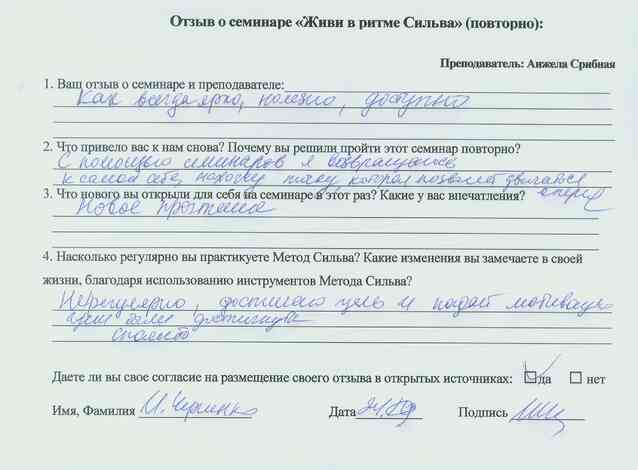 Отзыв о семинаре «Живи в ритме Сильва» (повторно):
Преподаватель: Анжела Срибная
1. Ваш отзыв о семинаре и преподавателе:
Как всегда ярко, полезно, доступно
2. Что привело вас к нам снова? Почему вы решили пройти этот семинар повторно?
С помощью семинаров я возвращаюсь
к самой себе, нахожу точку которая позволяет двигаться
вперед
3. Что нового вы открыли для себя на семинаре в этот раз? Какие у вас впечатления?
Новое
4. Насколько регулярно вы практикуете Метод Сильва? Какие изменения вы замечаете в своей
жизни, благодаря использованию инструментов Метода Сильва?
Нерегулярно, достигаю цель и падает мотивация
Даете ли вы свое согласие на размещение своего отзыва в открытых источниках: да нет
Имя, Фамилия И. Дата Подпись